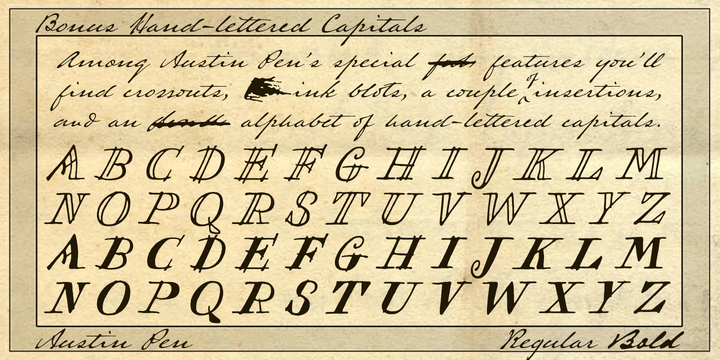 Bonus Hand-lettered Capitals
Among Austin Pen's special features you'll
find crossouts, ink blots, a couple of insertions,
and an alphabet of hand-lettered capitals.
A B C D E F G H I J K L M
N O P Q R S T U V W X Y Z
A B C D E F G H I J K L M
N O P Q R S T U V W X Y Z
Austin Pen
Regular Bold